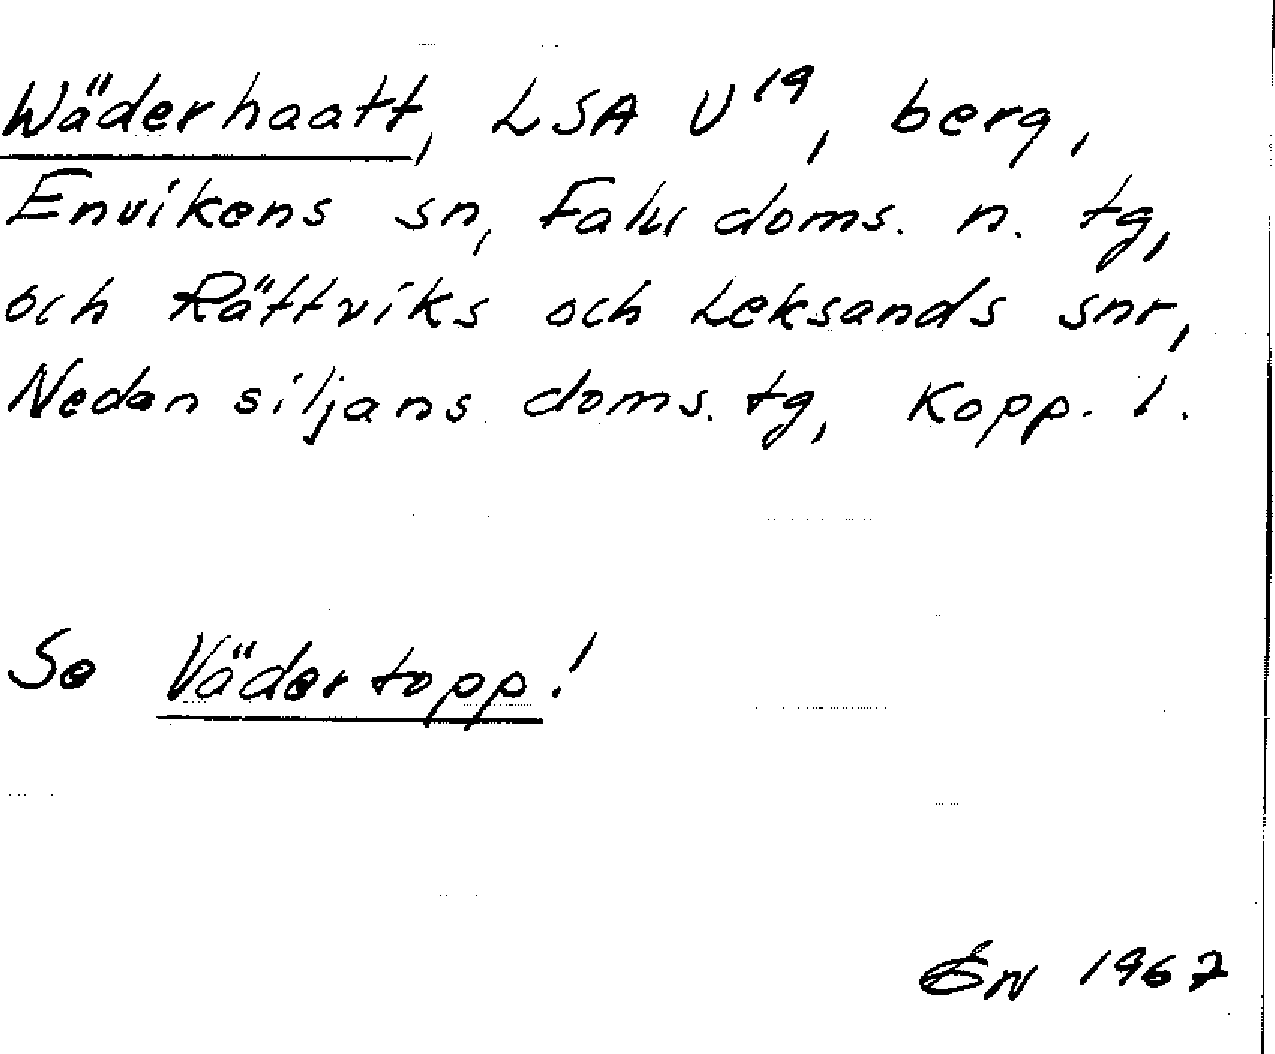 Wäderhaatt, LSA U¹⁹, berg,
Envikens sn, Falu doms. n. tg,
och Rättviks och Leksands snr,
Nedansiljans doms. tg, Kopp. l.
Se Vädertopp!
EN 1967